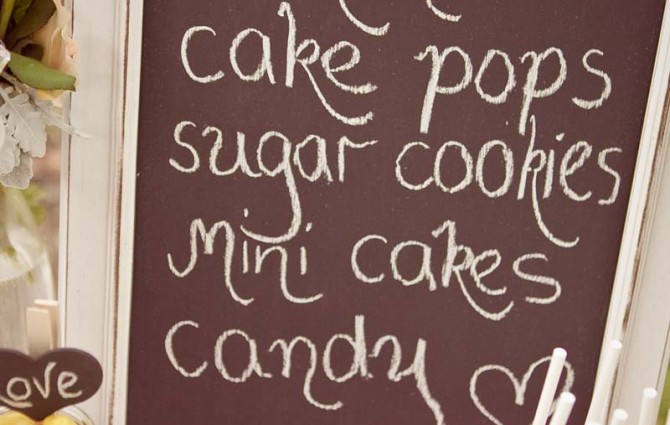 cake pops
sugar cookies
mini cakes
candy
Love